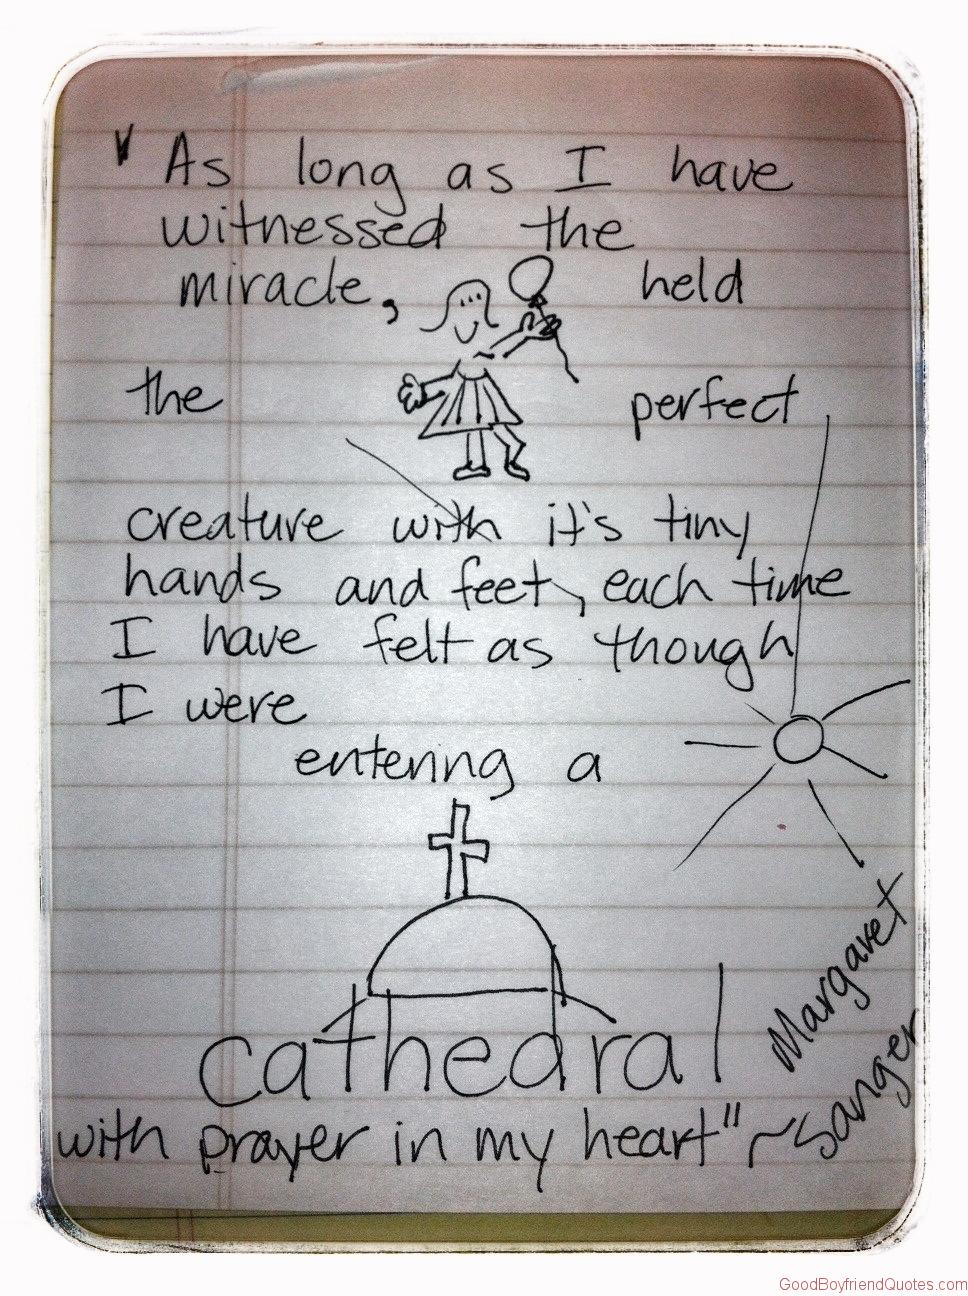 " As long as I have
witnessed the
miracle, held
the perfect
creature with it's tiny
hands and feet, each time
I have felt as though
I were
entering a
cathedral
with prayer in my heart" ~
Margaret
Sanger
GoodBoyfriendQuotes.com